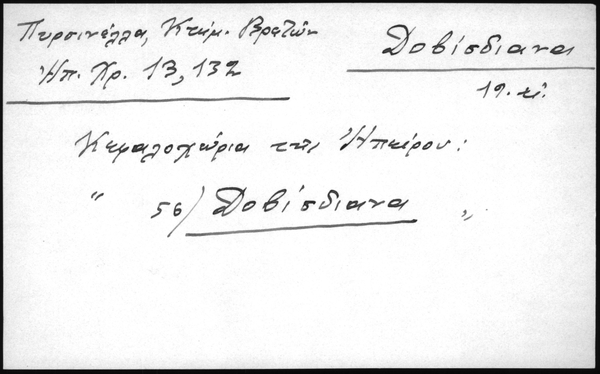 Πυρσινέλλα, Κτημ. Βρετῶν
Ἠπ. Χρ. 13, 132
Δοβίσδιανα
19. αἰ.
Κεφαλοχώρια τῆς Ἠπείρου:
" 56) Δοβίσδιανα "